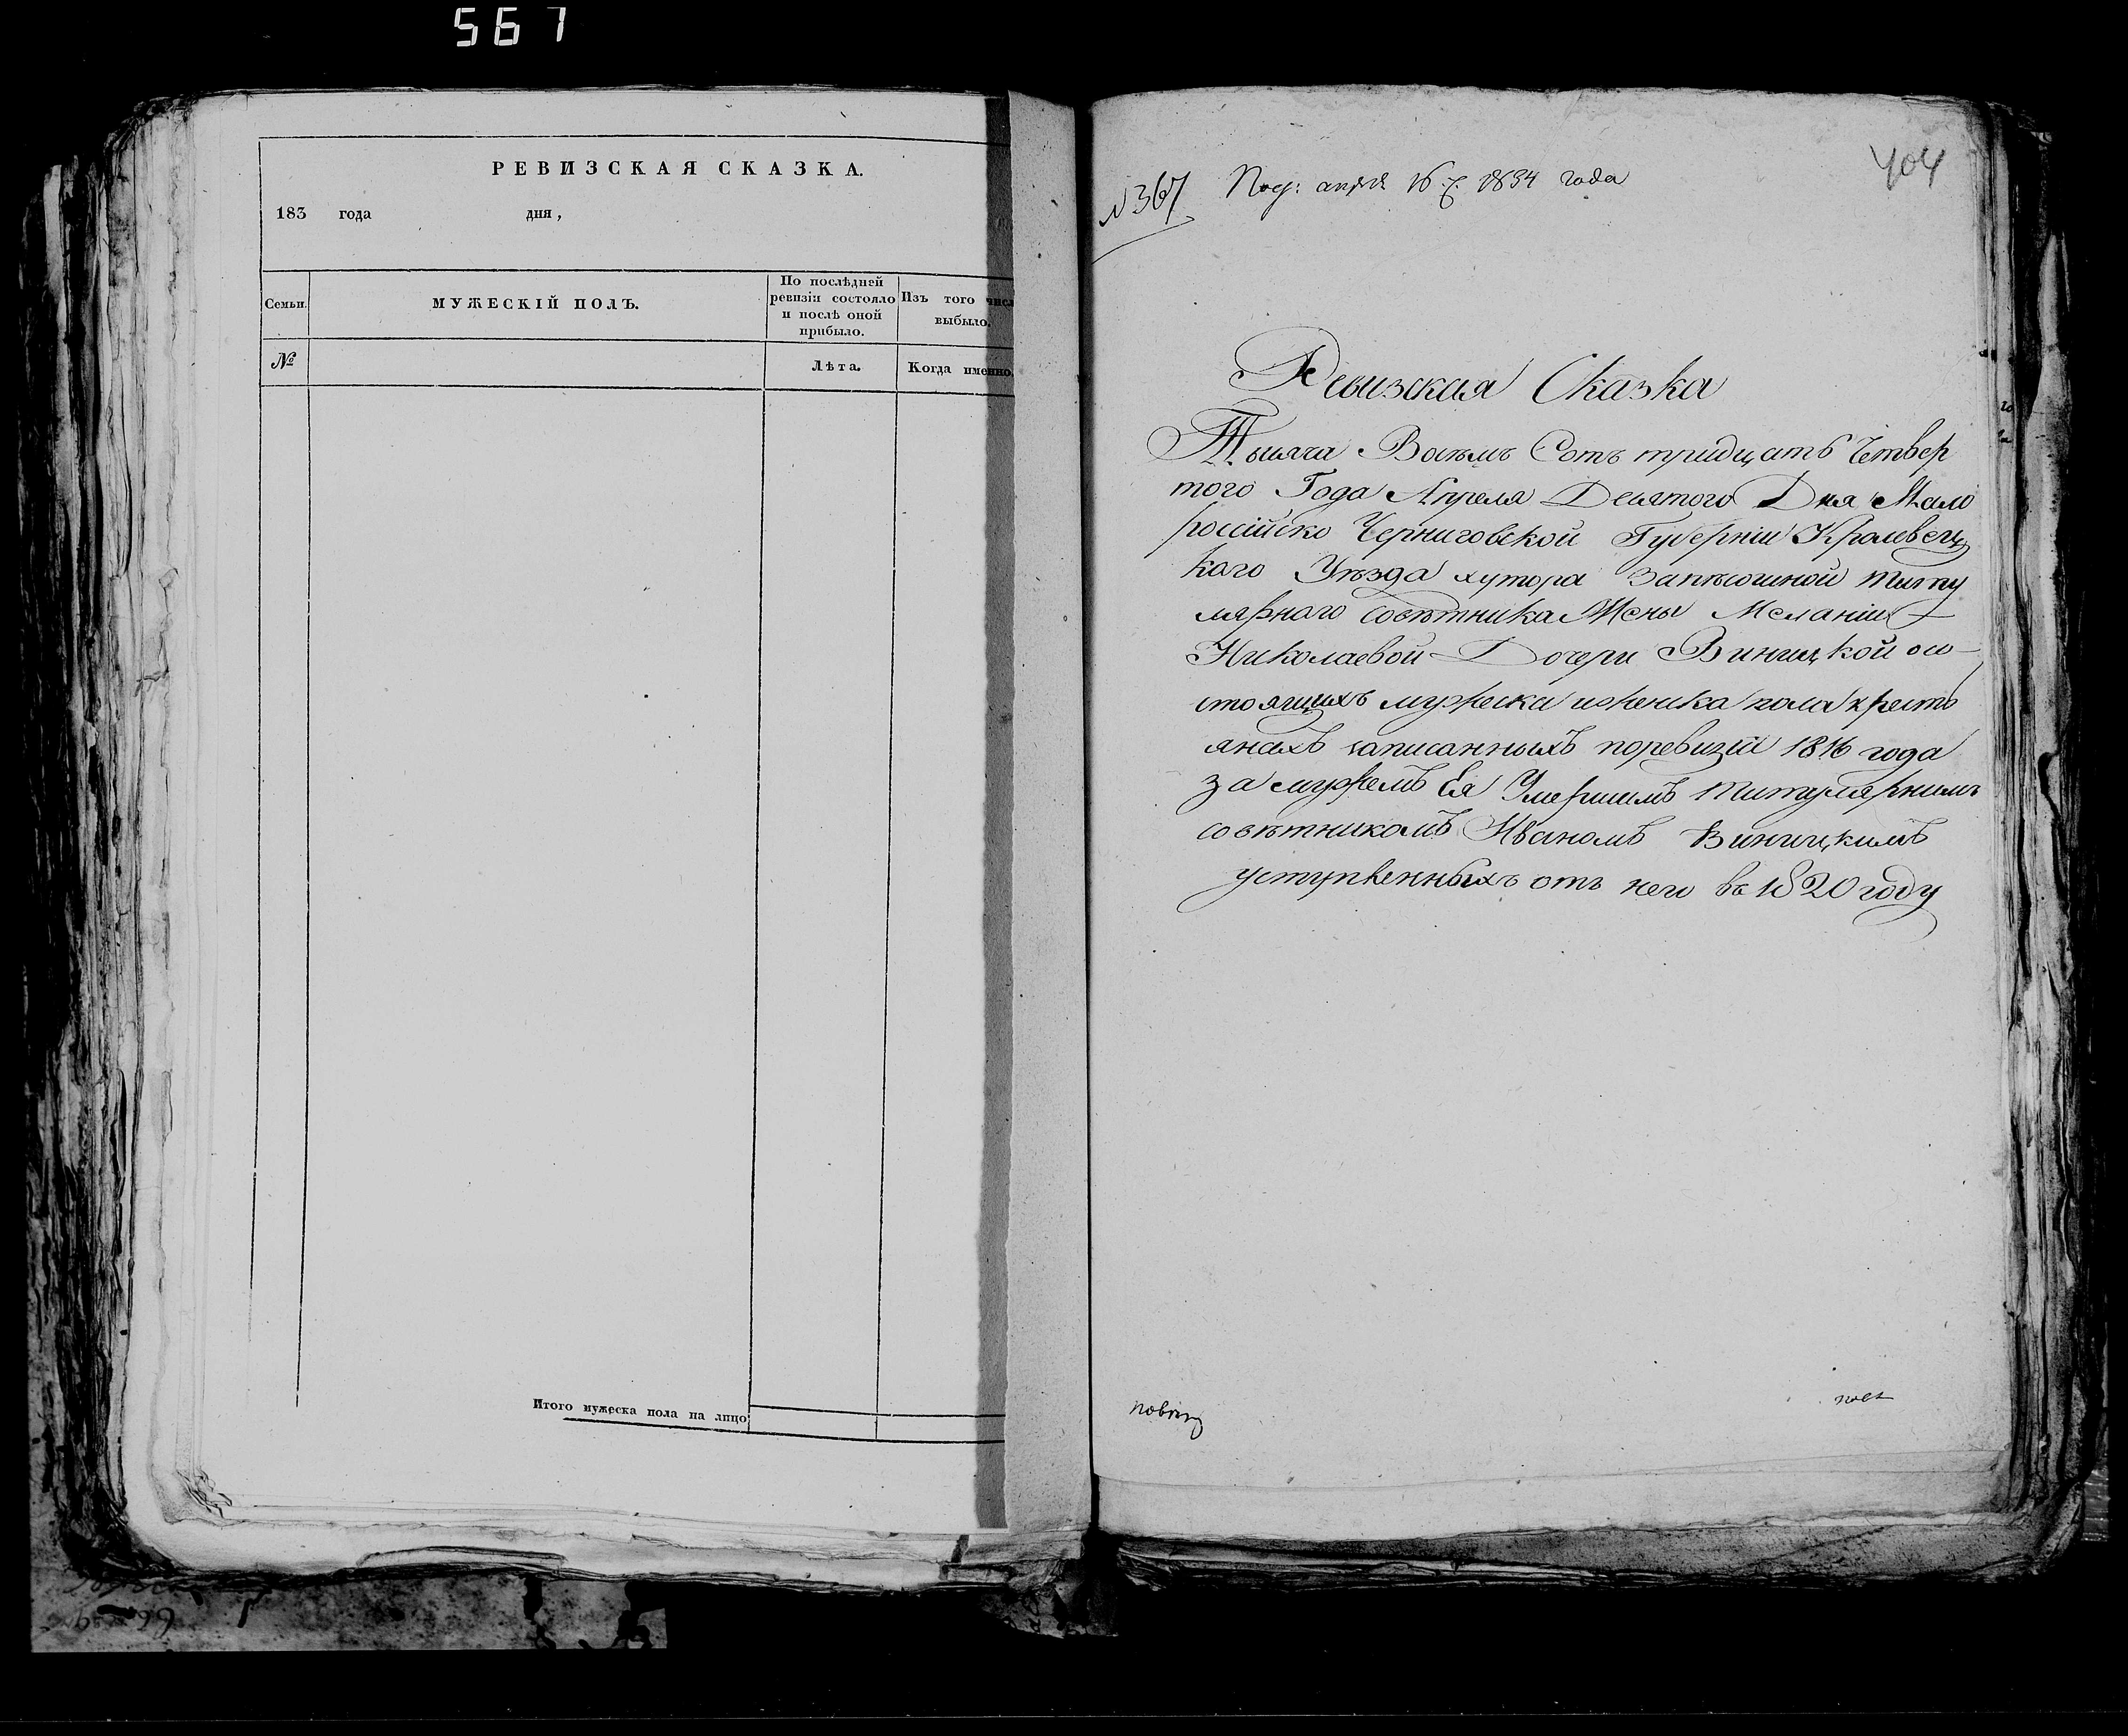 567
РЕВИЗСКАЯ СКАЗКА.
183 года дня,
Семьи.
МУЖЕСКІЙ ПОЛЪ.
По послѣдней
ревизіи состояло
и послѣ оной
прибыло.
Изъ того числ
выбыло.
№
Лѣта.
Когда именно.
Итого мужеска пола на лицо
404
№ 367 Под: апрѣля 16 ч. 1834 года
Ревизская Сказка
Тысяча Восѣмъ Сотъ тридцать Четвер
того Года Апреля Десятого Дня Мало
россійско Черниговской Губерніи Кролевец
кого Уѣзда хутора Запѣсошной титу
лярного совѣтника Жены Меланіи
Николаевой Дочери Виницкой осо
стоящихъ мужеска иженска пола крестъ
янахъ записанныхъ поревизіи 1816 года
за мужемъ Ея Умершимъ титулярнимъ
совѣтникомъ Иваномъ Виницкимъ
уступленныхъ отъ него въ 1820 году